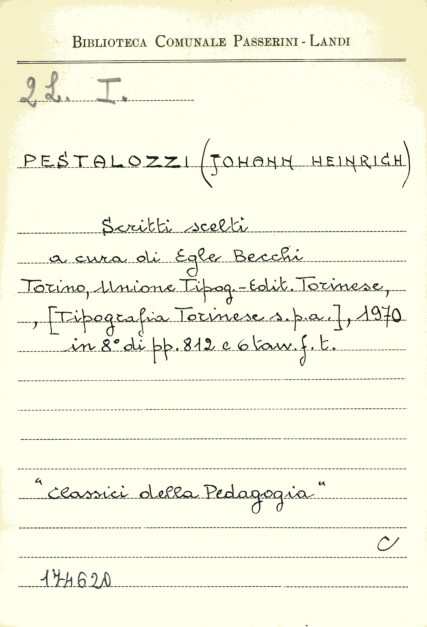 BIBLIOTECA COMUNALE PASSERINI - LANDI
2L. I.
PESTALOZZI (JOHANN HEINRICH)
Scritti scelti
a cura di Egle Becchi
Torino, Unione Tipog.-Edit. Torinese,
, [Tipografia Torinese s.p.a.], 1970
in 8° di pp. 812 e 6 tav. f. t.
"Classici della Pedagogia"
C
174620